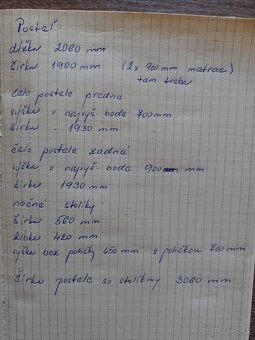 Posteľ:
dĺžka 2000 mm
šírka 1900 mm (2x 900mm matrac)
tam treba
čelo postele predné
výška v najvyš. bode 700mm
šírka - 1930 mm
čelo postele zadné
výška v najvyš. bode 900 mm
šírka 1930 mm
nočné stolíky:
šírka 560 mm
hĺbka 420 mm
výška bez poličky 450 mm s poličkou 700 mm
Šírka postele so stolíkmy 3060 mm